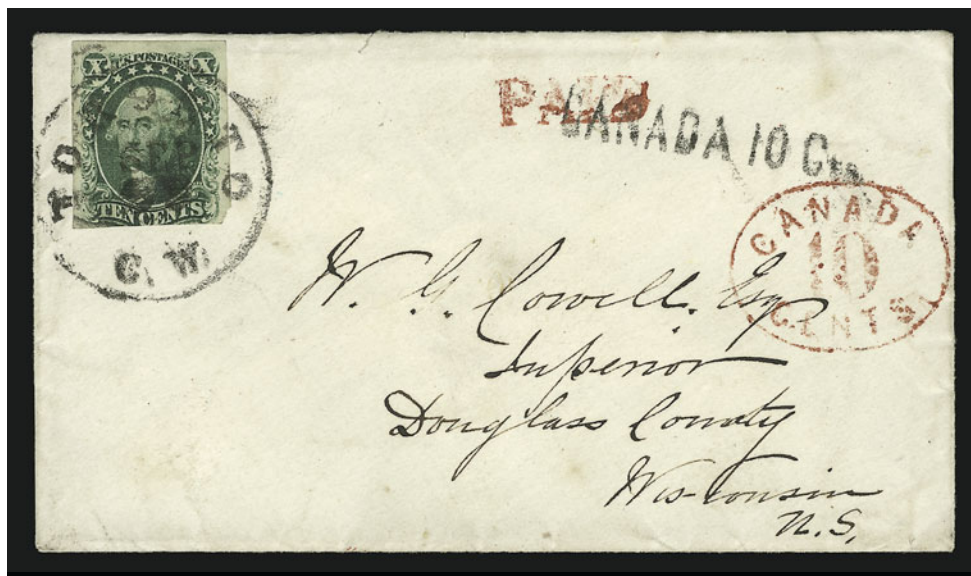 X U.S. POSTAGE X
TEN CENTS
TORONTO
C. W.
PAID
CANADA 10 Cts
CANADA
10
CENTS
W. G. Cowell. Esq
Superior
Douglass County
Wisconsin
U.S.